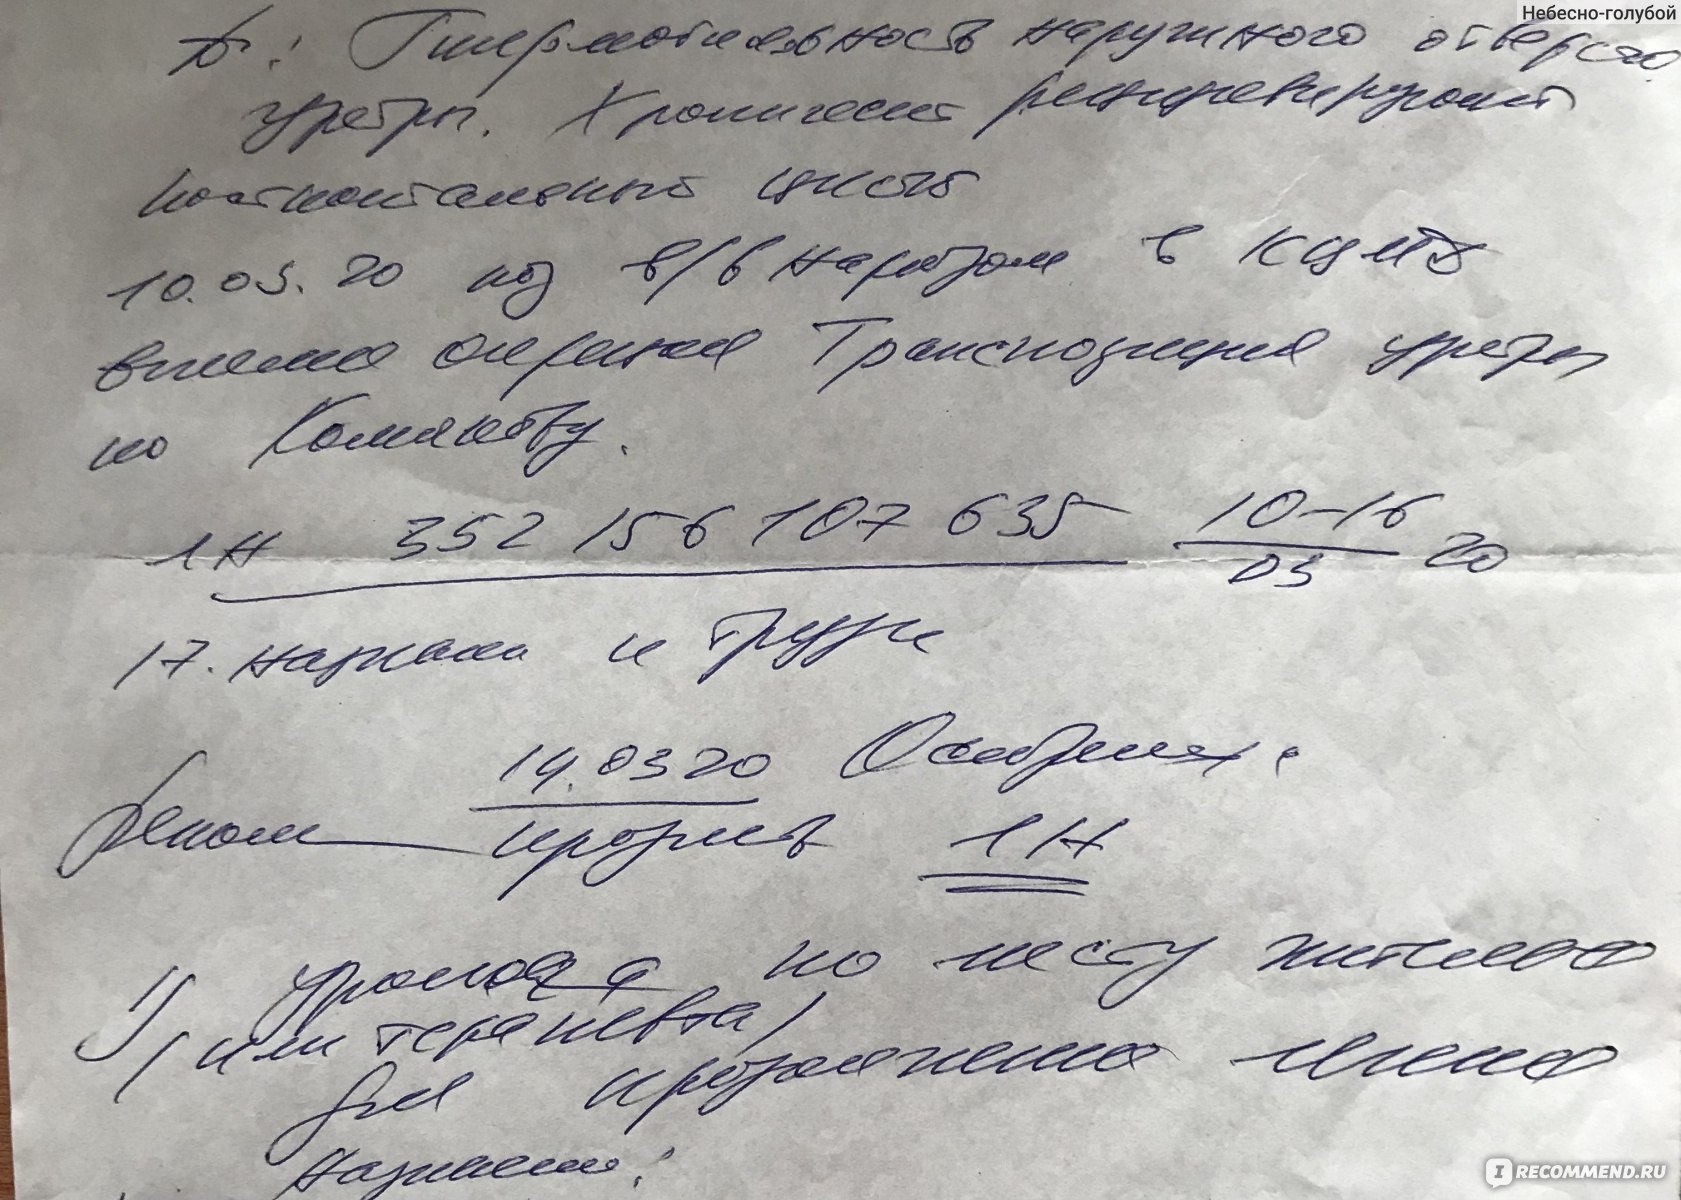 Небесно-голубой
Ds: Гипермобильность наружного отверст
уретры. Хронический рецидивирующий
посткоитальный цистит
10.03.20 под в/в наркозом в КЦМД
выполнена операция Транспозиция уретры
по Комякову.
1Н 352 156 107 635 10-16/03 20
17. и труду
14.03.20
Реком 1Н
1) уролога по месту жительства
(или терапевта)
для продолжения лечения
Назначено:
IRECOMMEND.RU